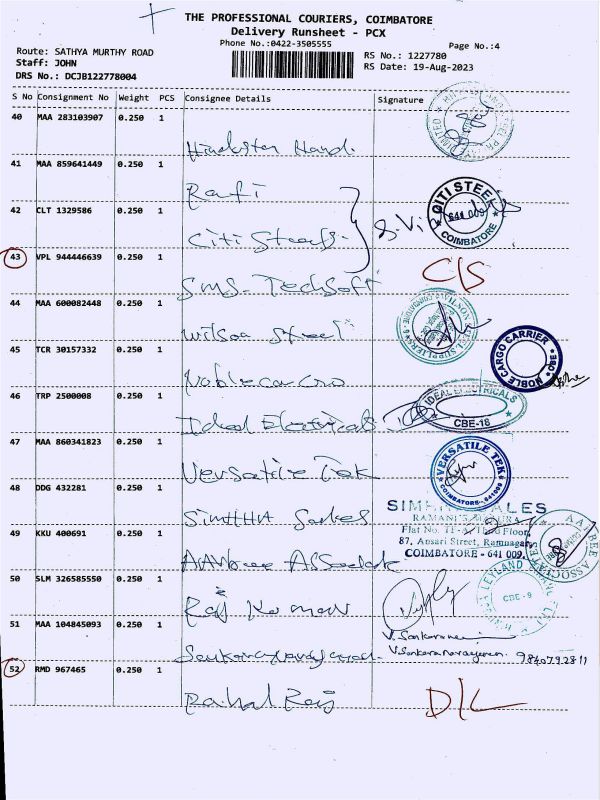 THE PROFESSIONAL COURIERS, COIMBATORE
Delivery Runsheet - PCX
Phone No.:0422-3505555
Page No.:4
Route: SATHYA MURTHY ROAD
Staff: JOHN
DRS No.: DCJB122778004
RS No.: 1227780
RS Date: 19-Aug-2023
S No Consignment No Weight PCS Consignee Details Signature
40 MAA 283103907 0.250 1
Hindustan Hand.
41 MAA 859641449 0.250 1
Rafi
42 CLT 1329586 0.250 1
Citi Steels.
CITI STEEL
641 009
COIMBATORE
43 VPL 944446639 0.250 1
SMS-Techsoft
C/S
44 MAA 600082448 0.250 1
Wilson Steel
45 TCR 30157332 0.250 1
Noble cargo
NOBLE CARGO CARRIER
46 TRP 2500008 0.250 1
Ideal Electricals
IDEAL ELECTRICALS
CBE-18
47 MAA 860341823 0.250 1
Versatile Tek
VERSATILE TEK
COIMBATORE-641009
48 DDG 432281 0.250 1
Simhha Sales
SALES
87, Ansari Street, Ramnagar,
COIMBATORE - 641 009.
49 KKU 400691 0.250 1
ASSOCIATES
50 SLM 326585550 0.250 1
Raj Kumar
LEYLAND
CBE - 9
51 MAA 104845093 0.250 1
Sankaranarayanan.
V. Sankaranarayanan. 9840792811
52 RMD 967465 0.250 1
Rahul Raj
D/L